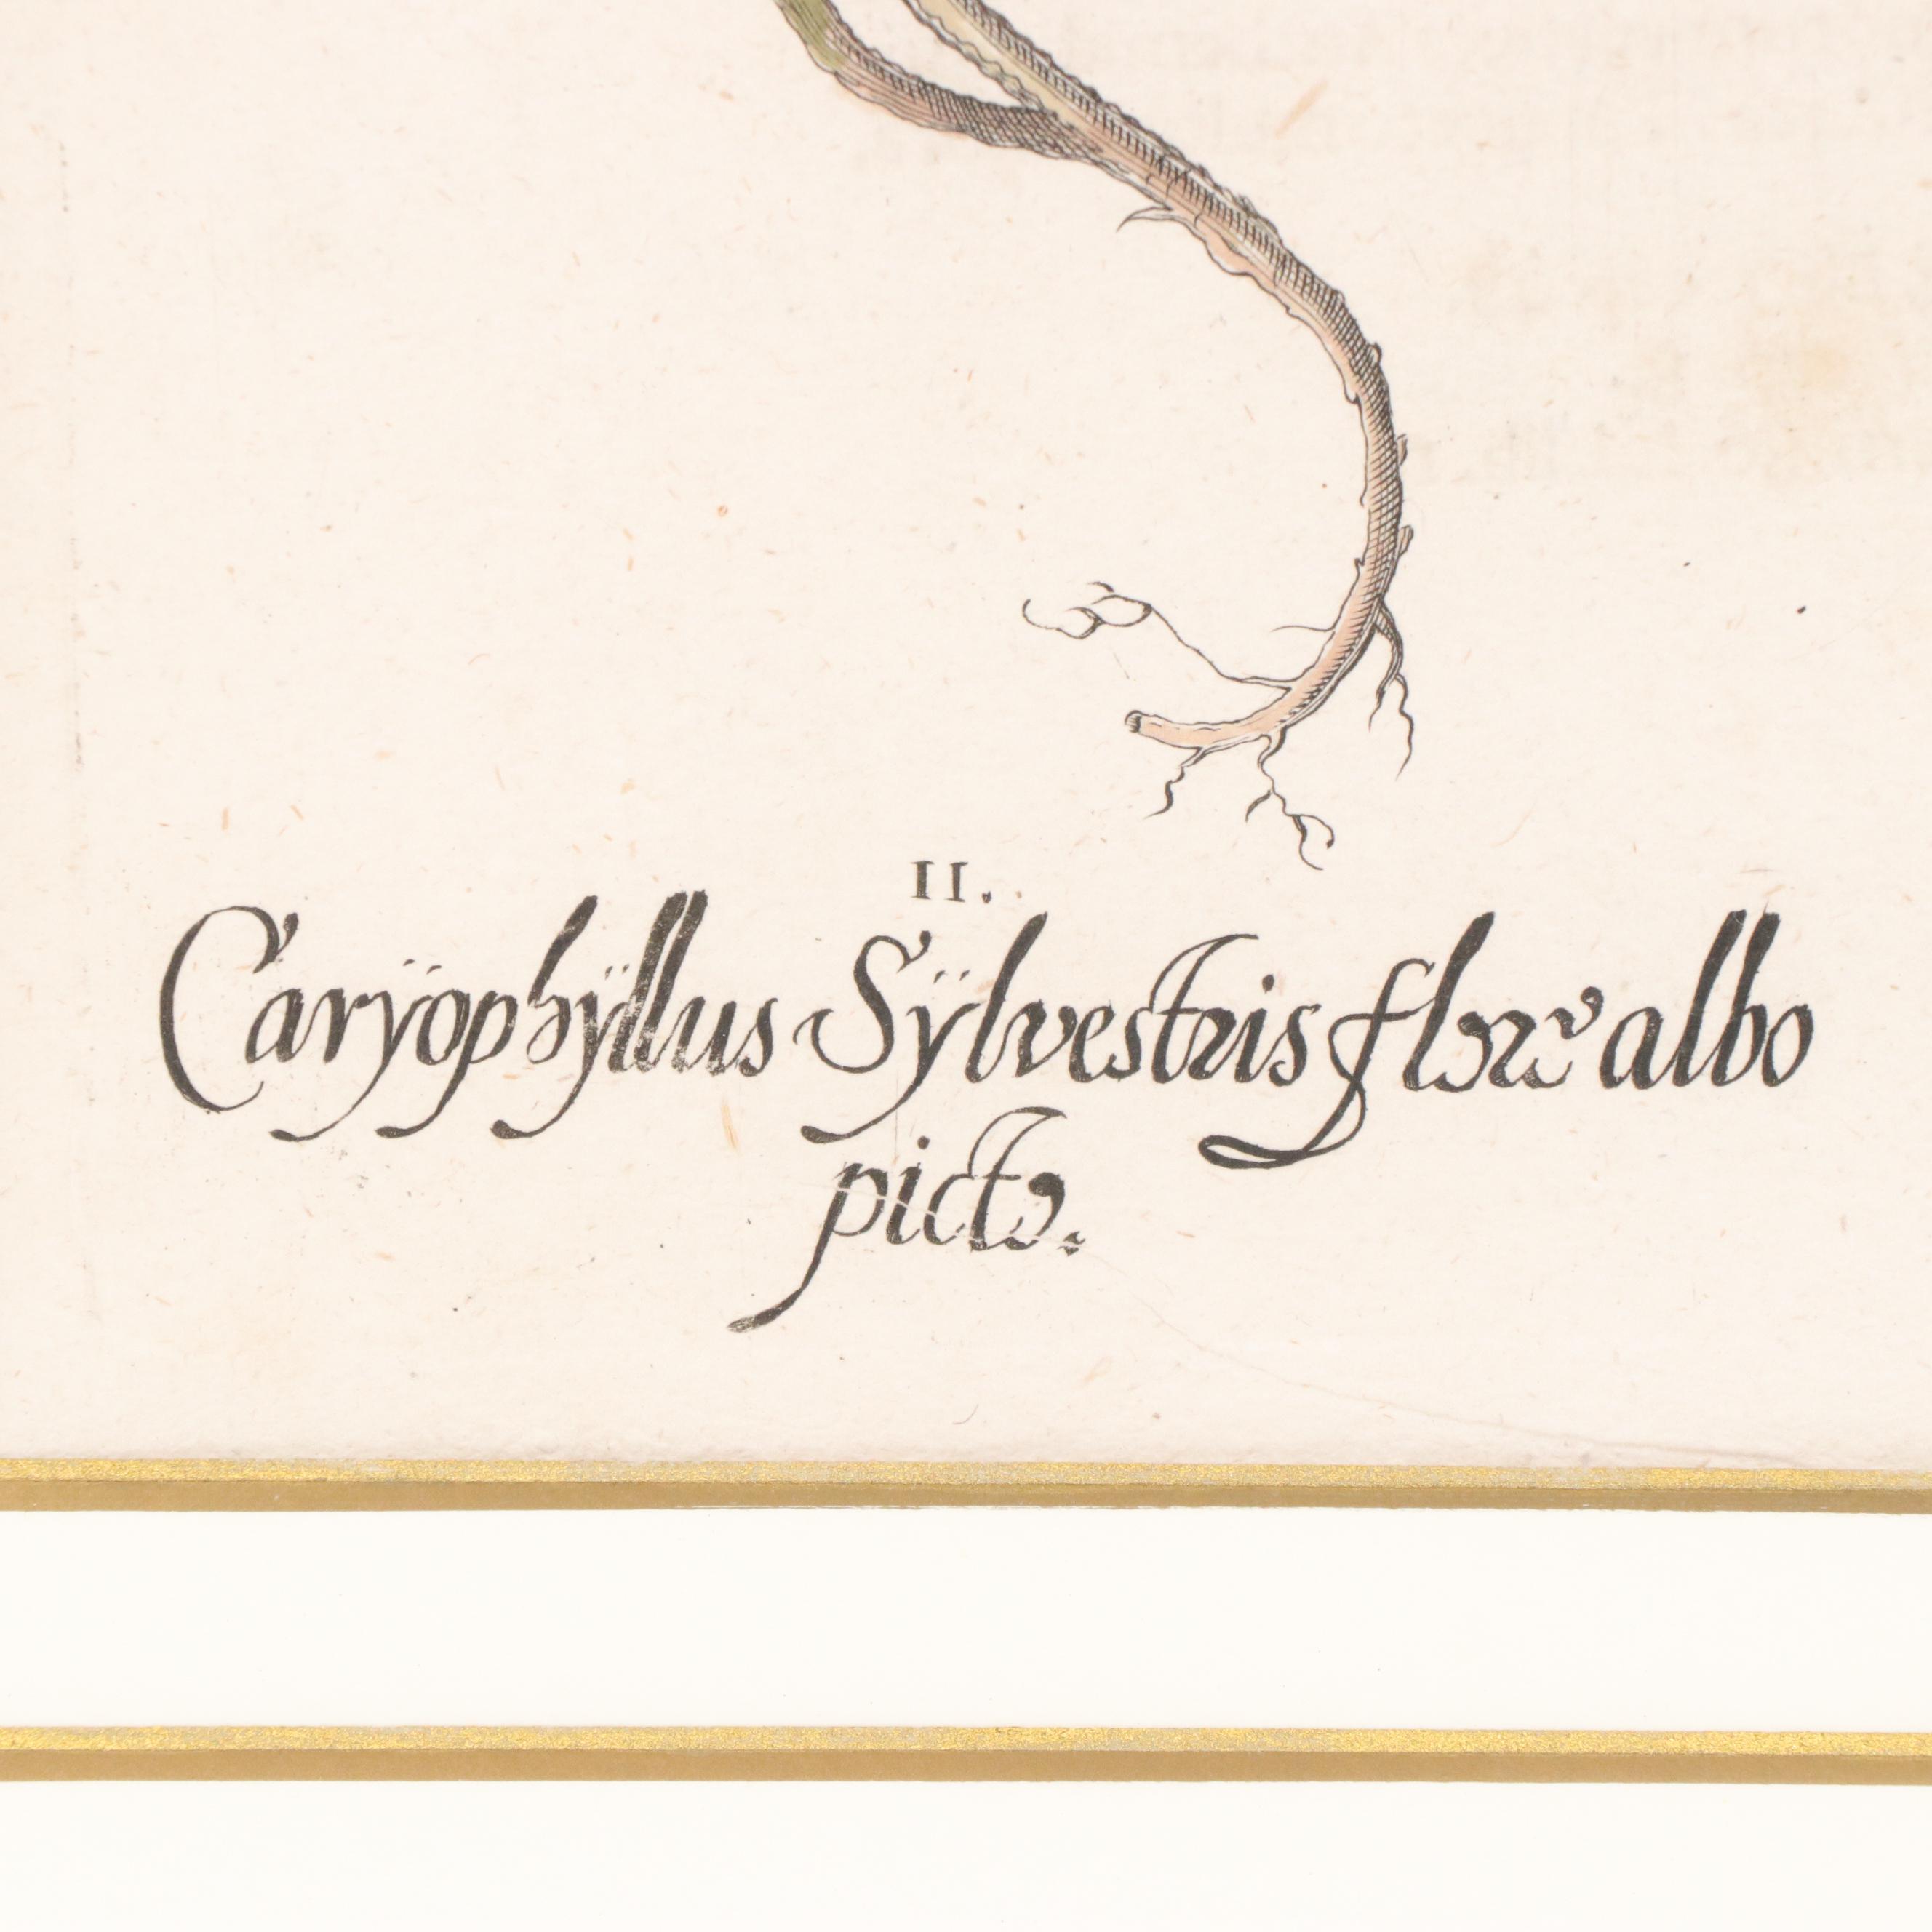 II.
Carÿophÿllus Sÿlvestris flore albo
picto.